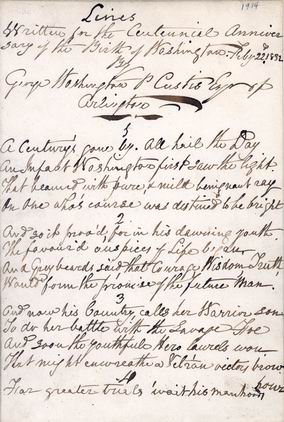 1914
Lines
Written for the Centennial Anniver
sary of the Birth of Washington Feby 22d 1832
By
George Washington P Custis Esqr of
Arlington
A Century's gone by. All hail the Day
An Infant Washington first saw the light
That beamed with pure & mild benignant ray
On one who's course was destined to be bright
2
And so it proved, for in his dawning youth
The favour'd auspices of Life began
And Greybeards said that Courage Wisdom Truth
Would form the promise of the future Man.
3
And now his Country calls her Warrior son
To do her battle with the Savage Foe
And soon the youthful Hero laurels won
That might enwreathe a Vet'ran victors brow
4
Far greater trials 'wait his manhoods
hour